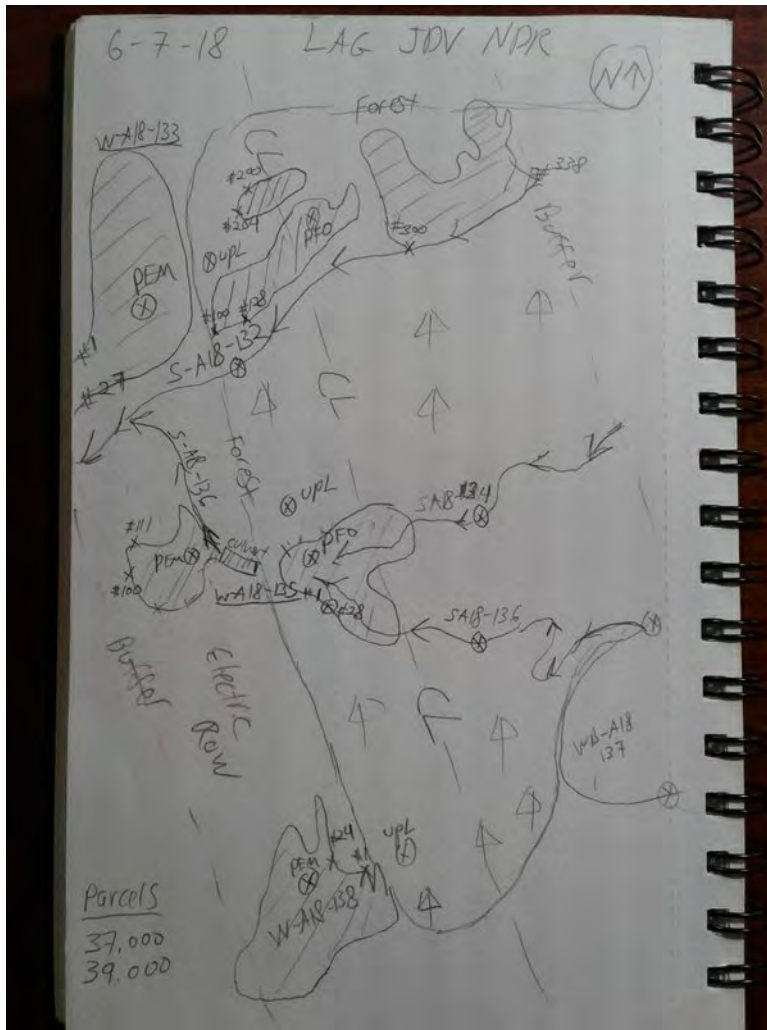 6-7-18 LAG JDV NPR
N↑
Forest
W-A18-133
CL
#200
#204
#338
PFO
#300
Buffer
UPL
PEM
#100 #128
#1
S-A18-132
#27
CL
Forest
S-A18-136
UPL
SA18-134
#111
PFO
PEM
culvert
#100
W-A18-135 #1
#28
SA18-136
Buffer
Electric
Row
CL
WB-A18
137
#24
UPL
PEM
#1
W-A18-138
Parcels
37.000
39.000